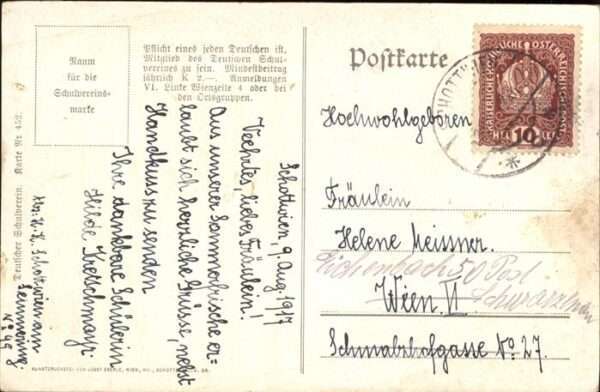 Raum
für die
Schulvereins-
marke
Pflicht eines jeden Deutschen ist,
Mitglied des Deutschen Schul-
vereines zu sein. Mindestbeitrag
jährlich K 2.—. Anmeldungen
VI. Linke Wienzeile 4 oder bei
den Ortsgruppen.
Deutscher Schulverein. Karte Nr. 452.
Schottwien, 9. Aug. 1917
Verehrtes, liebes Fräulein!
Aus unserer Sommerfrische er-
laubt sich herzliche Grüsse, nebst
Handkuss zu senden
Ihre dankbare Schülerin
Hilde Kretschmayr.
Schottwien am
Semmering
No 49
Postkarte
KAISERLICHE KÖNIGLICHE ÖSTERREICHISCHE POST
HELLER 10 HELLER
SCHOTTWIEN
Hochwohlgeboren
Fräulein
Helene Meissner.
Eichenbach 50 Post
Schwarzenau
Wien. VI
Schmalzhofgasse No. 27.